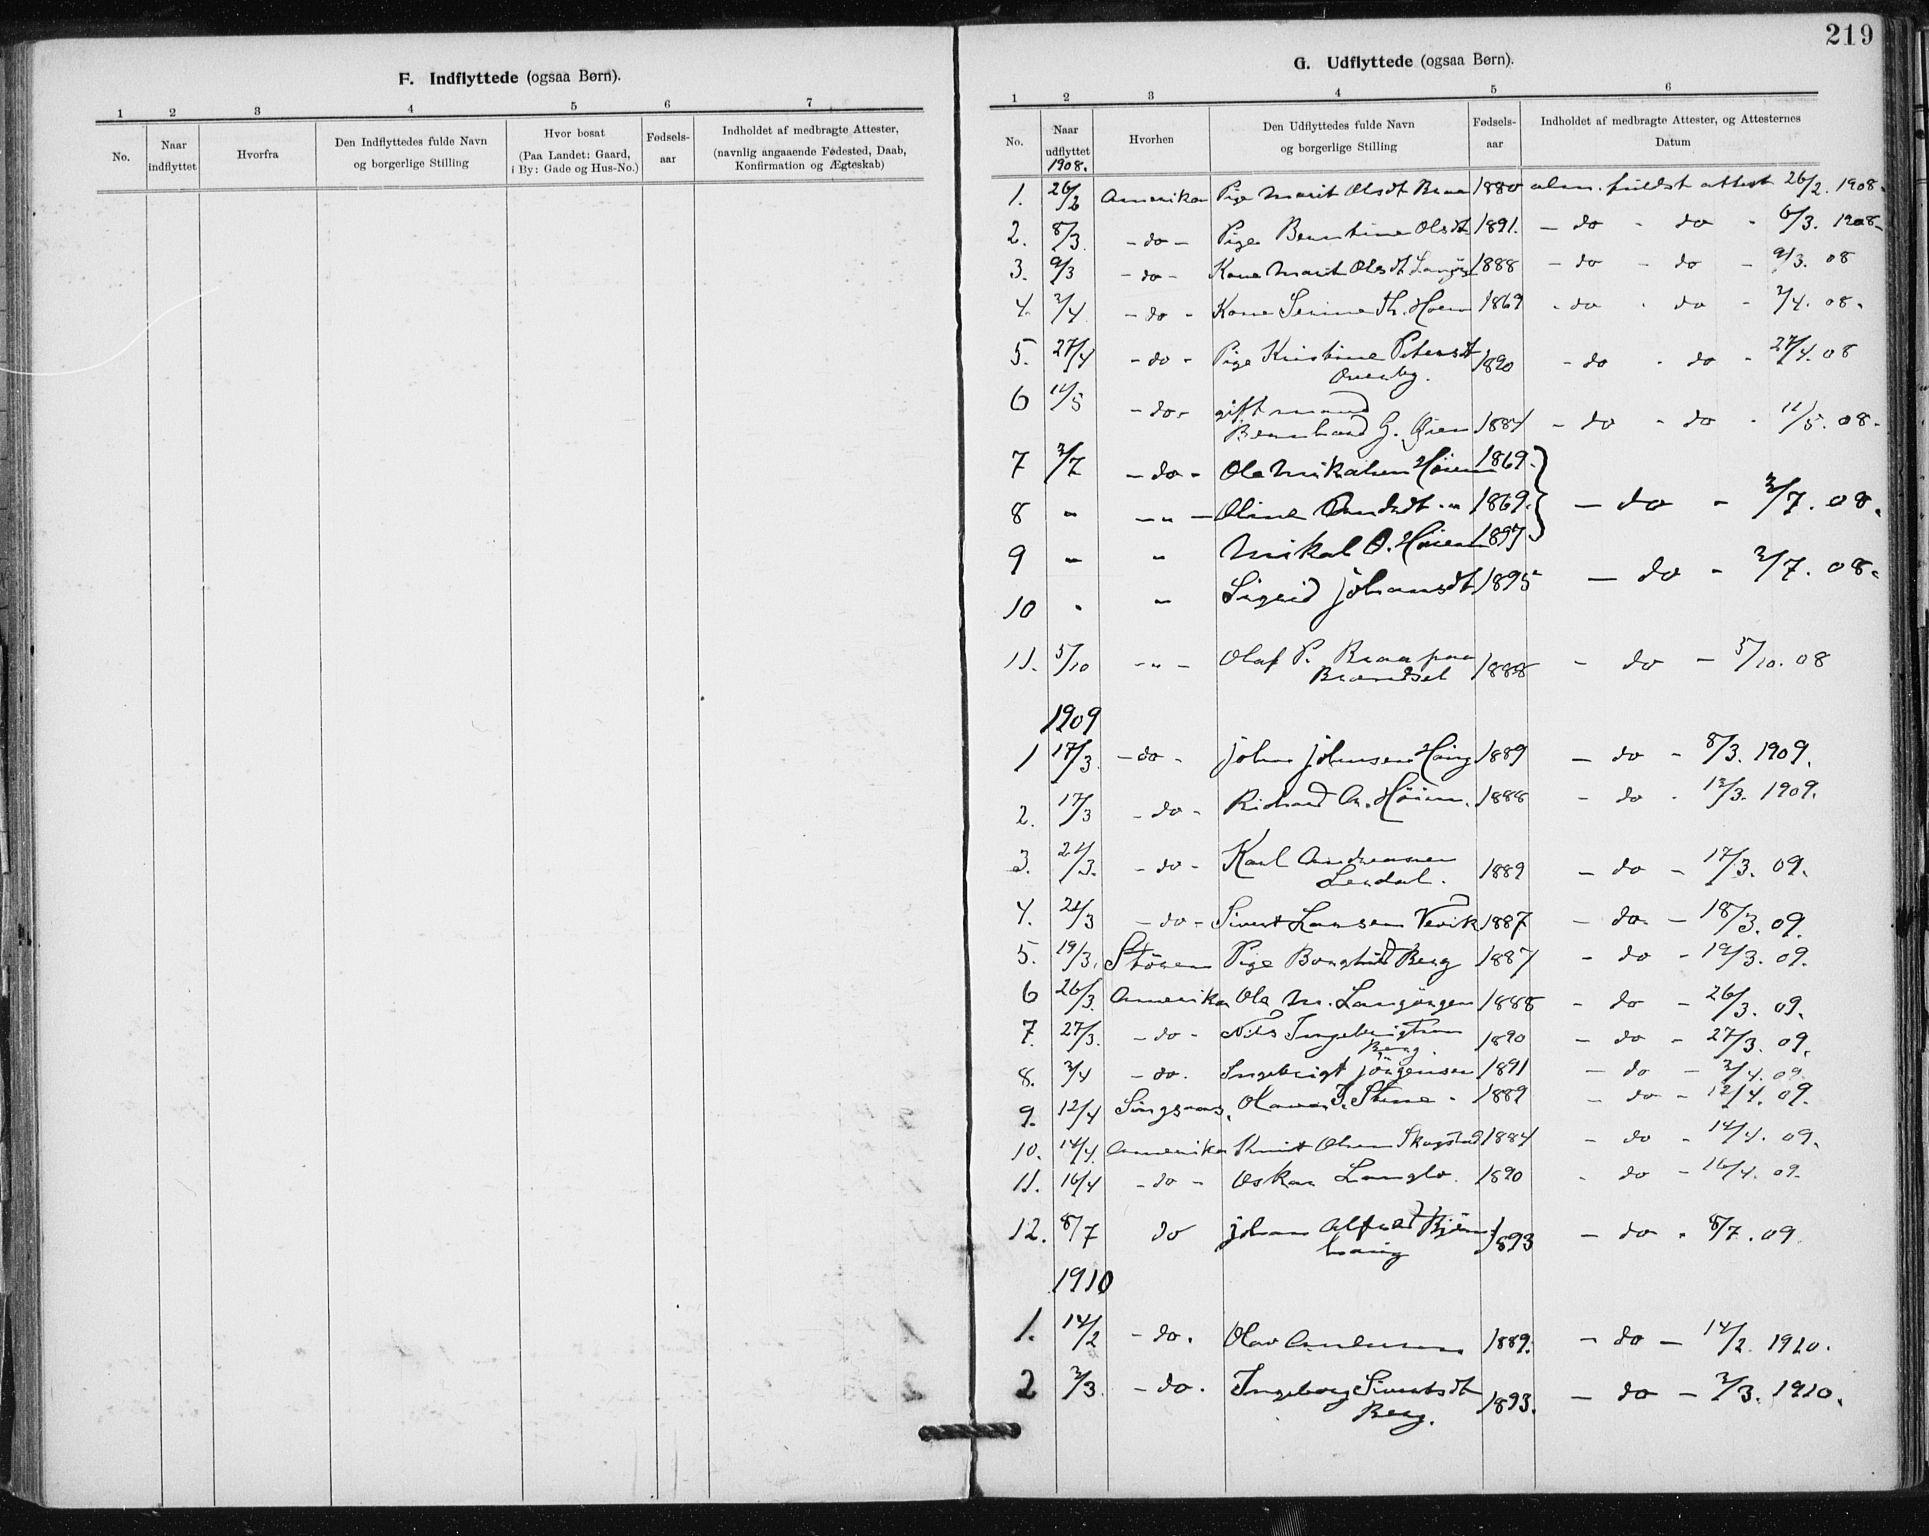 F. Indflyttede (ogsaa Børn).
1 2 3 4 5 6 7
No.
Naar indflyttet
Hvorfra
Den Indflyttedes fulde Navn og borgerlige Stilling
Hvor bosat (Paa Landet: Gaard, i By: Gade og Hus-No.)
Fødsels-aar
Indholdet af medbragte Attester, (navnlig angaaende Fødested, Daab, Konfirmation og Ægteskab)
219
G. Udflyttede (ogsaa Børn).
1 2 3 4 5 6
No.
Naar udflyttet
Hvorhen
Den Udflyttedes fulde Navn og borgerlige Stilling
Fødsels-aar
Indholdet af medbragte Attester, og Attesternes Datum
1908.
1. 26/2 Amerika Pige Marit Olsdt Braa 1880 alm. fuldst attest 26/2. 1908.
2. 8/3 -do- Pige Berntine Olsdt 1891. - do - do - 6/3. 1908.
3. 9/3 -do- Kone Marit Olsdt 1888 - do - do - 9/3. 08
4. 2/4 -do- Kone Serine Th. Hoem 1869 - do - do - 2/4. 08.
5. 27/4 -do- Pige Kristine Petersdt 1890 - do - do - 27/4. 08
Overby.
6 11/5 -do- gift mand
Bernhard G. Øien 1884 - do - do - 11/5. 08.
7 2/7 -do- Ole Mikalsen Höiem 1869.
8 " -"- Oline " 1869. - do - 2/7. 08.
9 " " Mikal O. Höiem 1897
10 " " Sigrid Johansdt 1895 - do - 2/7. 08.
11. 5/10 -"- Olaf P. Braa paa 1888 - do - 5/10. 08
Brandset
1909
1 17/3. -do- John Johnsen Haug 1889 - do - 8/3. 1909.
2. 17/3 -do- Richard A. Höiem. 1888 - do - 12/3. 1909.
3. 21/3. -do- Karl Andreassen 1889 - do - 17/3. 09.
Lerdal.
4. 21/3 -do- Sivert Larsen Vevik 1887 - do - 18/3. 09.
5. 19/3. Stören Pige Borghild Berg 1887 - do - 19/3. 09.
6 26/3. Amerika Ole M. Langörgen 1888 - do - 26/3. 09.
7. 27/3. -do- Nils Ingebrigtsen 1890 - do - 27/3. 09.
Berg.
8. 2/4 -do. Ingebrigt Jörgensen 1891 - do - 2/4. 09
9. 12/4 Singsaas. 1889 - do - 12/4. 09.
10. 14/4. Amerika Knut Olsen Skogstad 1884 - do - 14/4. 09.
11. 16/4 -do- Oskar Langlo. 1890 - do - 16/4. 09.
12. 8/7 do Johan Alfred Bjern- 1893 - do - 8/7. 09.
haug
1910
1. 14/2 -do. Olav Andersen 1889. - do - 14/2. 1910.
2 2/3. -do. Ingeborg Sivertsdt 1893. - do - 2/3. 1910.
Berg.